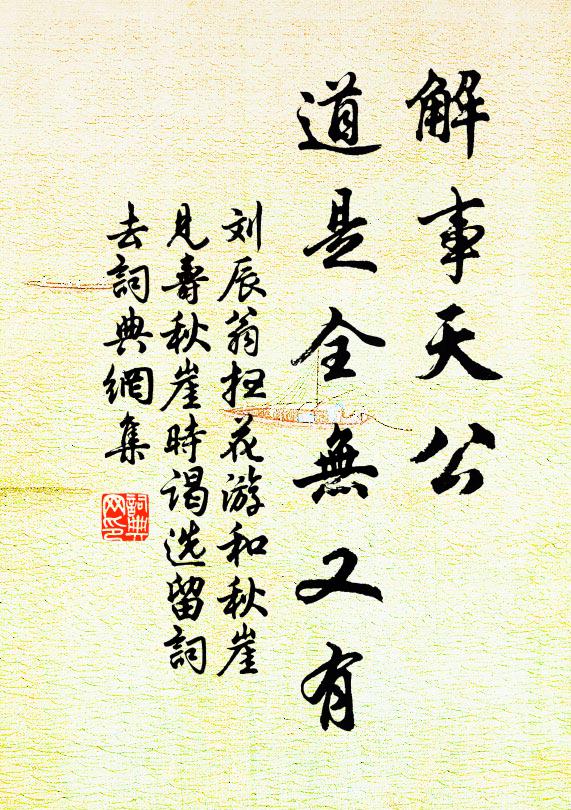 解事天公
道是全無又有
刘辰翁扫花游和秋崖
見壽秋崖時谒选留詞
去詞典網集
詞典
网印